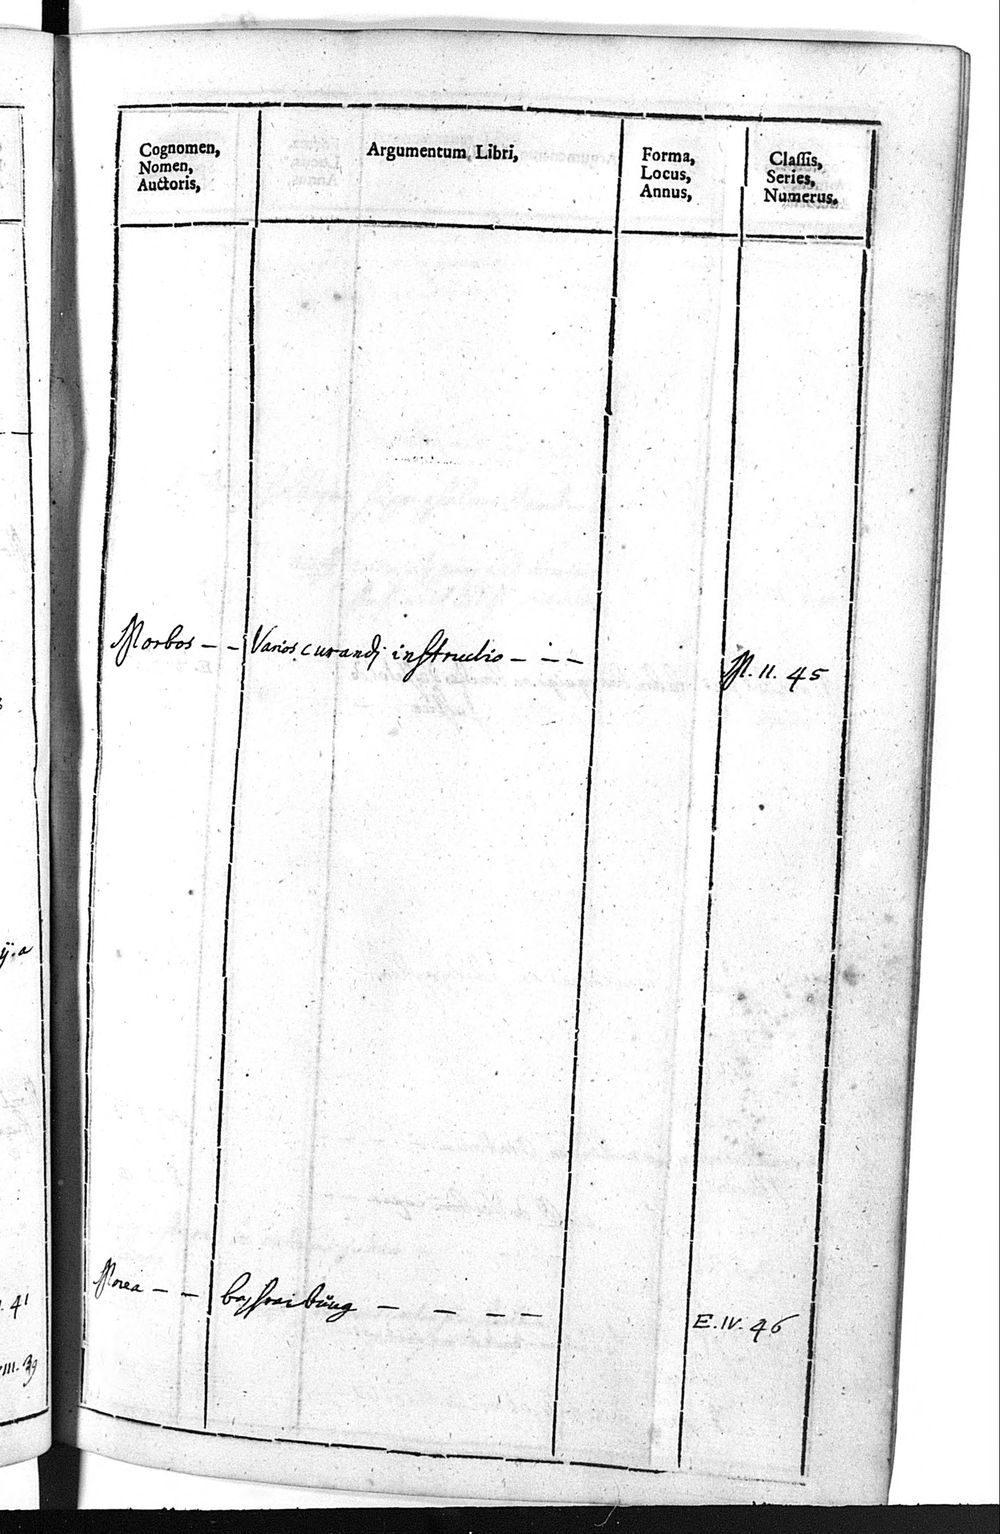 Cognomen,
Nomen,
Auctoris,
Argumentum Libri,
Forma,
Locus,
Annus,
Classis,
Series,
Numerus.
Morbos - - Varios curandi instructio - - - M. II. 45
ÿ. a
41
III. 39
Morea - - beschreibŭng - - - - E. IV. 46